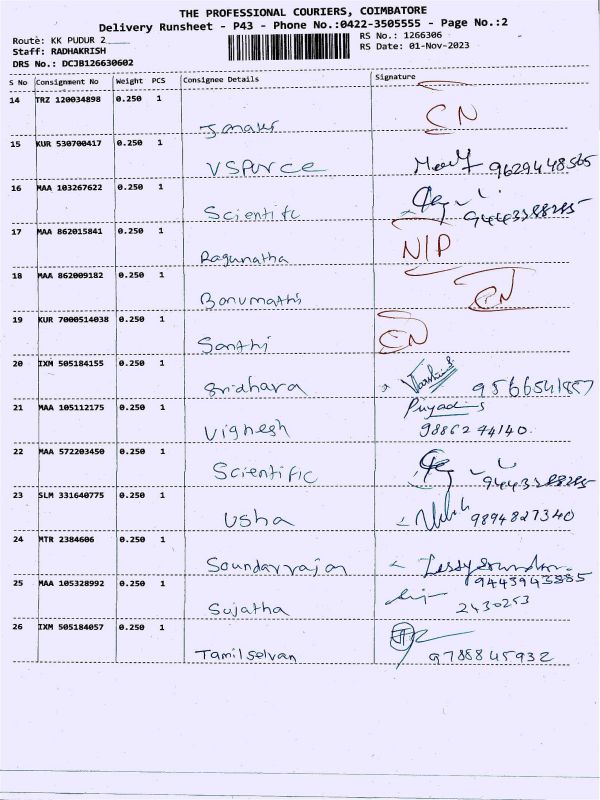 THE PROFESSIONAL COURIERS, COIMBATORE
Delivery Runsheet - P43 - Phone No.:0422-3505555 - Page No.:2
Route: KK PUDUR 2
RS No.: 1266306
Staff: RADHAKRISH
RS Date: 01-Nov-2023
DRS No.: DCJB126630602
S No Consignment No Weight PCS Consignee Details Signature
14 TRZ 120034898 0.250 1
CN
15 KUR 530700417 0.250 1
VSPURCE 9629448565
16 MAA 103267622 0.250 1
Scientifc
17 MAA 862015841 0.250 1
Ragunatha N/P
18 MAA 862009182 0.250 1
Bonumathi CN
19 KUR 7000514038 0.250 1
Santhi CN
20 IXM 505184155 0.250 1
Sridhara
21 MAA 105112175 0.250 1
Vighesh Priyadis
9886244140.
22 MAA 572203450 0.250 1
Scientific
23 SLM 331640775 0.250 1
Usha 9894827340
24 MTR 2384606 0.250 1
Soundarrajan
9443943885
25 MAA 105328992 0.250 1
Sujatha 2430253
26 IXM 505184057 0.250 1
Tamilselvan 9788845932